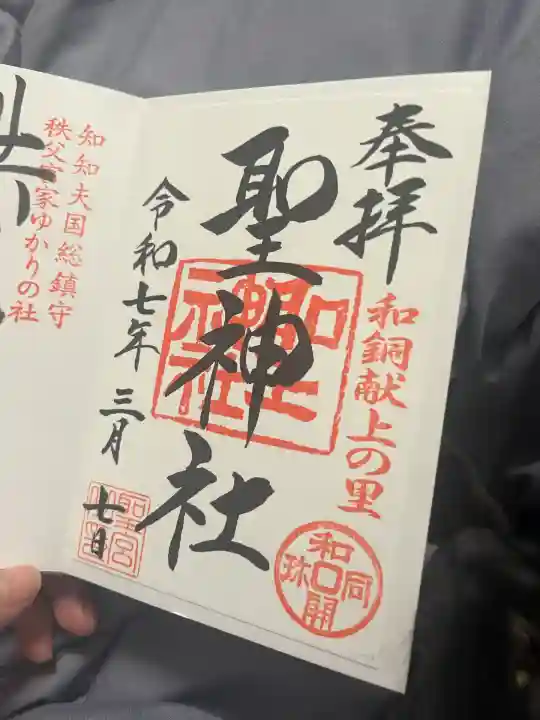 奉拝
和銅献上の里
聖神社
和同開珎
令和七年三月七日
知知夫国総鎮守
秩父宮家ゆかりの社